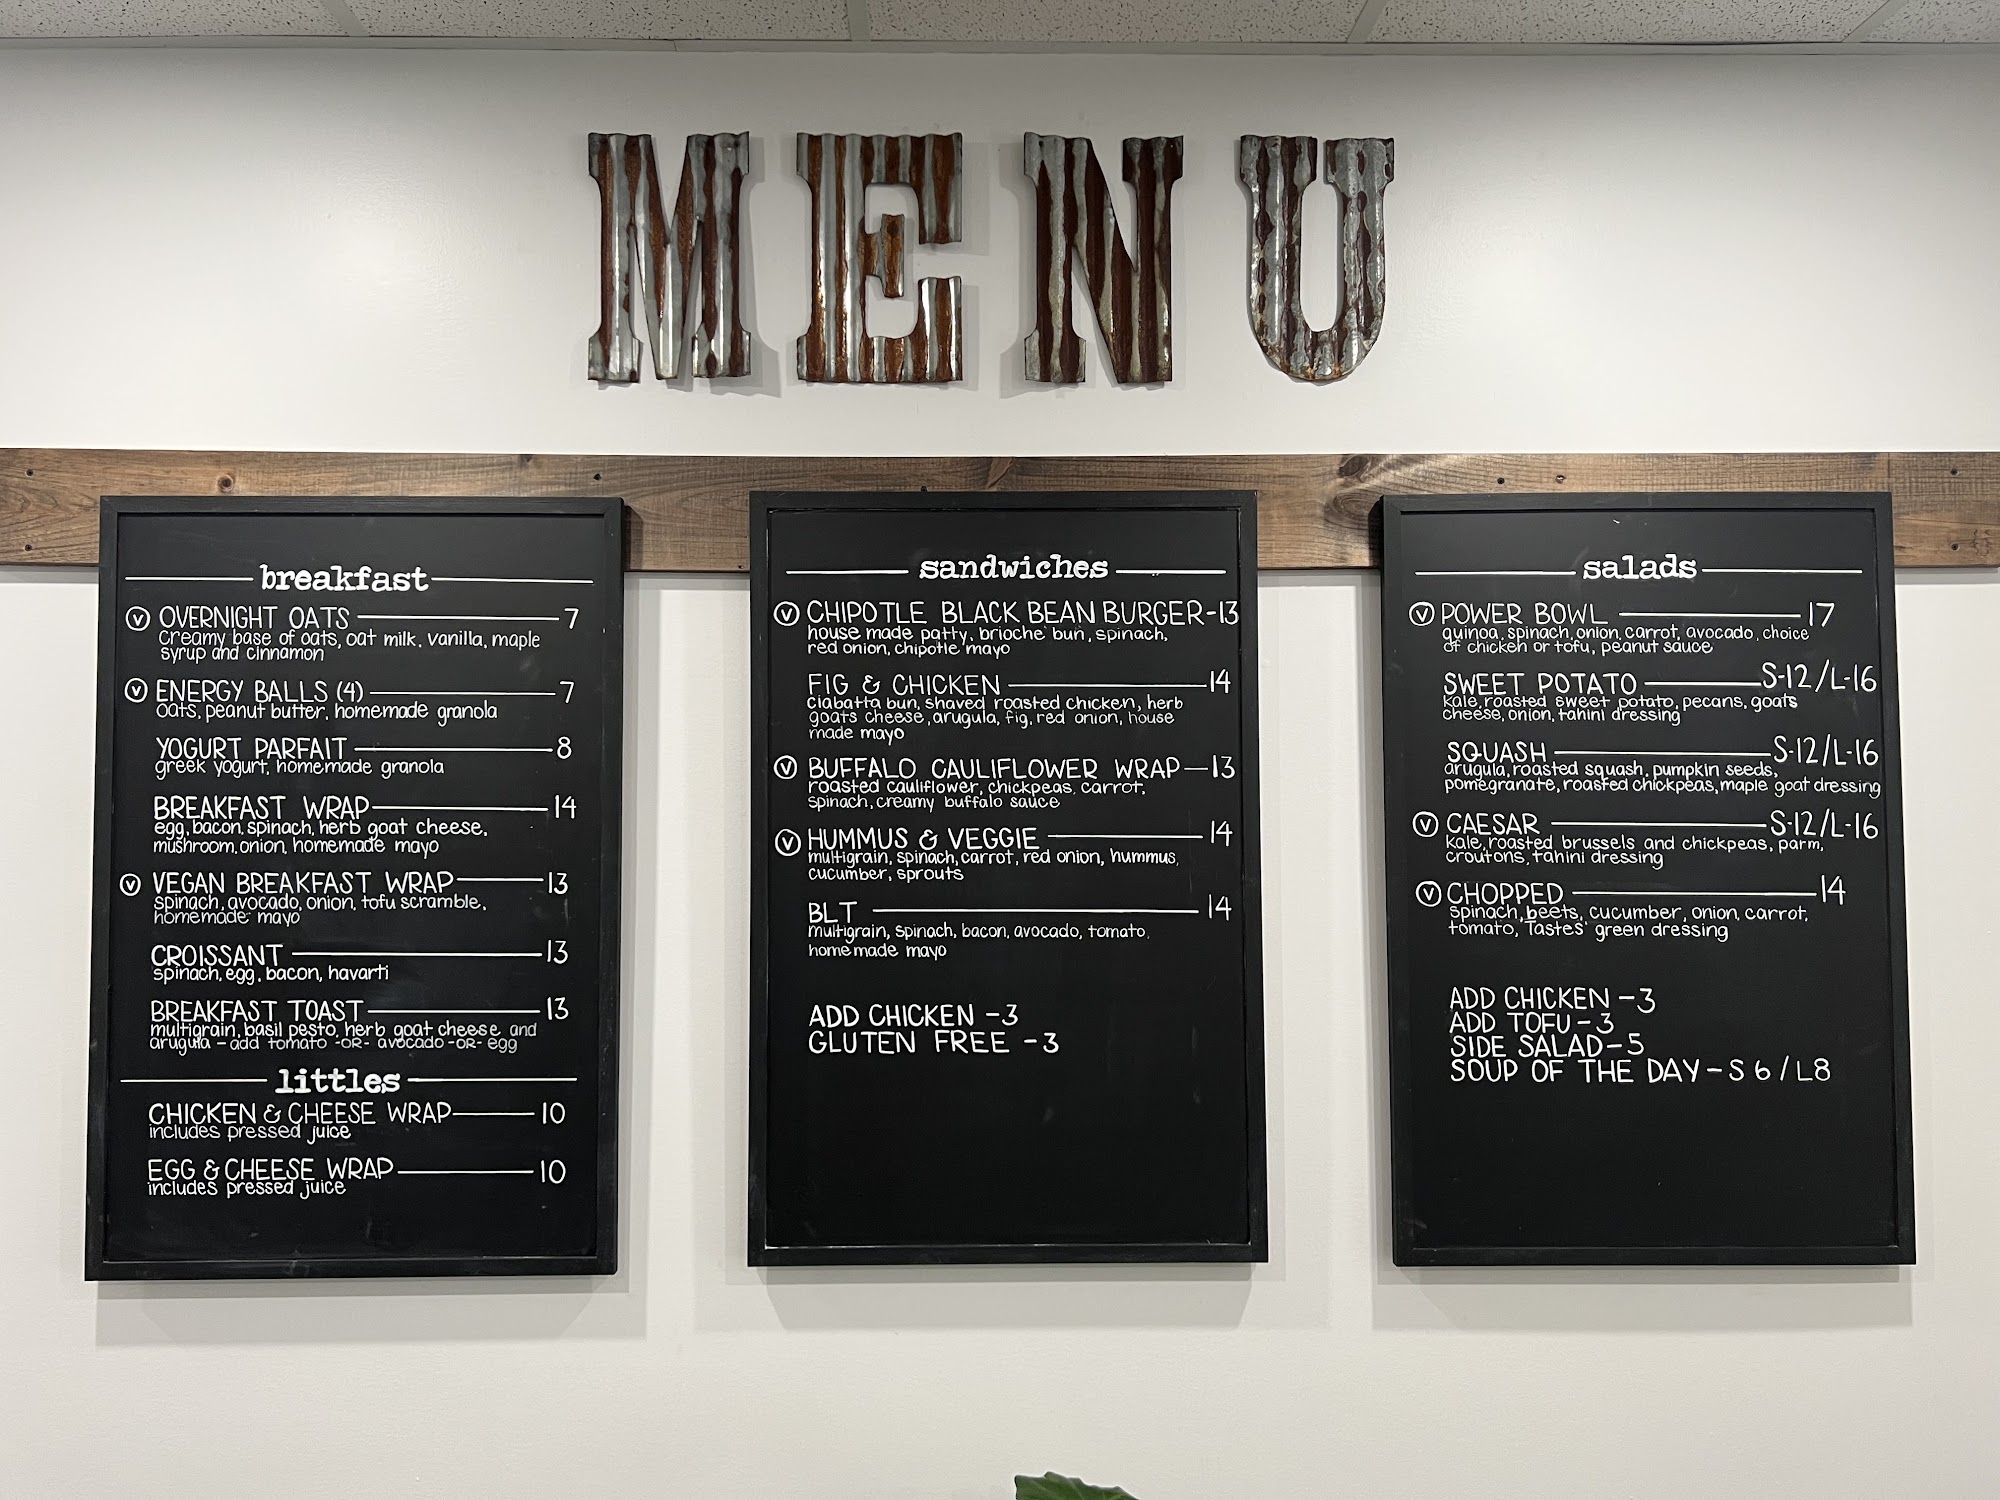 MENU
breakfast
Ⓥ OVERNIGHT OATS 7
creamy base of oats, oat milk, vanilla, maple
syrup and cinnamon
Ⓥ ENERGY BALLS (4) 7
oats, peanut butter, homemade granola
YOGURT PARFAIT 8
greek yogurt, homemade granola
BREAKFAST WRAP 14
egg, bacon, spinach, herb goat cheese,
mushroom, onion, homemade mayo
Ⓥ VEGAN BREAKFAST WRAP 13
spinach, avocado, onion, tofu scramble,
homemade mayo
CROISSANT 13
spinach, egg, bacon, havarti
BREAKFAST TOAST 13
multigrain, basil pesto, herb goat cheese and
arugula - add tomato -OR- avocado -OR- egg
littles
CHICKEN & CHEESE WRAP 10
includes pressed juice
EGG & CHEESE WRAP 10
includes pressed juice
sandwiches
Ⓥ CHIPOTLE BLACK BEAN BURGER-13
house made patty, brioche bun, spinach,
red onion, chipotle mayo
FIG & CHICKEN 14
ciabatta bun, shaved roasted chicken, herb
goats cheese, arugula, fig, red onion, house
made mayo
Ⓥ BUFFALO CAULIFLOWER WRAP 13
roasted cauliflower, chickpeas, carrot,
spinach, creamy buffalo sauce
Ⓥ HUMMUS & VEGGIE 14
multigrain, spinach, carrot, red onion, hummus,
cucumber, sprouts
BLT 14
multigrain, spinach, bacon, avocado, tomato,
homemade mayo
ADD CHICKEN -3
GLUTEN FREE -3
salads
Ⓥ POWER BOWL 17
quinoa, spinach, onion, carrot, avocado, choice
of chicken or tofu, peanut sauce
SWEET POTATO S-12/L-16
kale, roasted sweet potato, pecans, goats
cheese, onion, tahini dressing
SQUASH S-12/L-16
arugula, roasted squash, pumpkin seeds,
pomegranate, roasted chickpeas, maple goat dressing
Ⓥ CAESAR S-12/L-16
kale, roasted brussels and chickpeas, parm,
croutons, tahini dressing
Ⓥ CHOPPED 14
spinach, beets, cucumber, onion, carrot,
tomato, Tastes' green dressing
ADD CHICKEN -3
ADD TOFU -3
SIDE SALAD -5
SOUP OF THE DAY - S 6 / L8